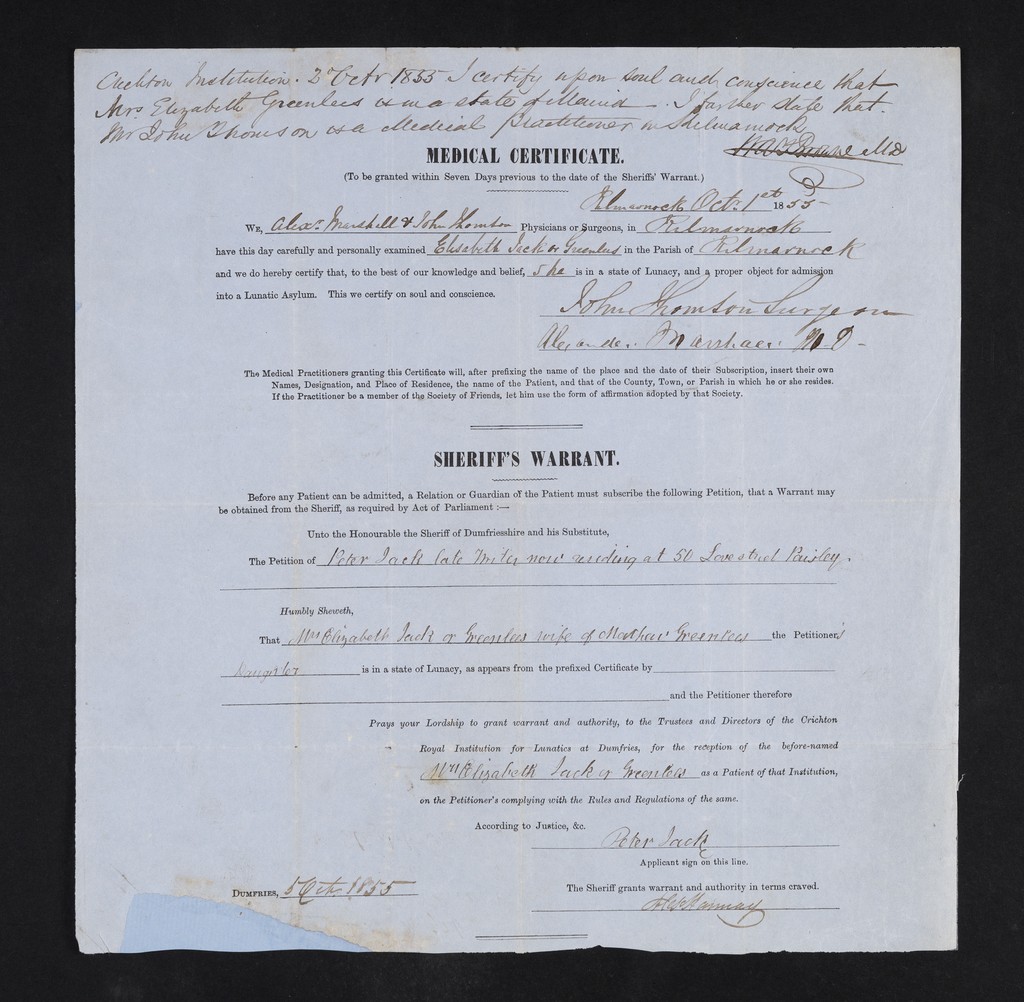 Crichton Institution. 2 Octr 1855 I certify upon soul and conscience that
Mrs. Elizabeth Greenlees is in a state of Mania. I farther state that
Mr John Thomson is a Medical Practitioner in Kilmarnock
W.A.F. Browne MD
MEDICAL CERTIFICATE.
(To be granted within Seven Days previous to the date of the Sheriffs' Warrant.)
Kilmarnock Octr. 1st 1855
WE, Alexr. Marshall & John Thomson Physicians or Surgeons, in Kilmarnock
have this day carefully and personally examined Elisabeth Jack or Greenlees in the Parish of Kilmarnock
and we do hereby certify that, to the best of our knowledge and belief, She is in a state of Lunacy, and a proper object for admission
into a Lunatic Asylum. This we certify on soul and conscience.
John Thomson Surgeon
Alexander Marshall M.D-
The Medical Practitioners granting this Certificate will, after prefixing the name of the place and the date of their Subscription, insert their own
Names, Designation, and Place of Residence, the name of the Patient, and that of the County, Town, or Parish in which he or she resides.
If the Practitioner be a member of the Society of Friends, let him use the form of affirmation adopted by that Society.
SHERIFF'S WARRANT.
Before any Patient can be admitted, a Relation or Guardian of the Patient must subscribe the following Petition, that a Warrant may
be obtained from the Sheriff, as required by Act of Parliament :—
Unto the Honourable the Sheriff of Dumfriesshire and his Substitute,
The Petition of Peter Jack late Writer now residing at 50 Love street Paisley.
Humbly Sheweth,
That Mrs Elizabeth Jack or Greenlees wife of Mathew Greenlees the Petitioner's
Daughter is in a state of Lunacy, as appears from the prefixed Certificate by
and the Petitioner therefore
Prays your Lordship to grant warrant and authority, to the Trustees and Directors of the Crichton
Royal Institution for Lunatics at Dumfries, for the reception of the before-named
Mrs Elizabeth Jack or Greenlees as a Patient of that Institution,
on the Petitioner's complying with the Rules and Regulations of the same.
According to Justice, &c.
Peter Jack
Applicant sign on this line.
The Sheriff grants warrant and authority in terms craved.
DUMFRIES, 5 Octr 1855